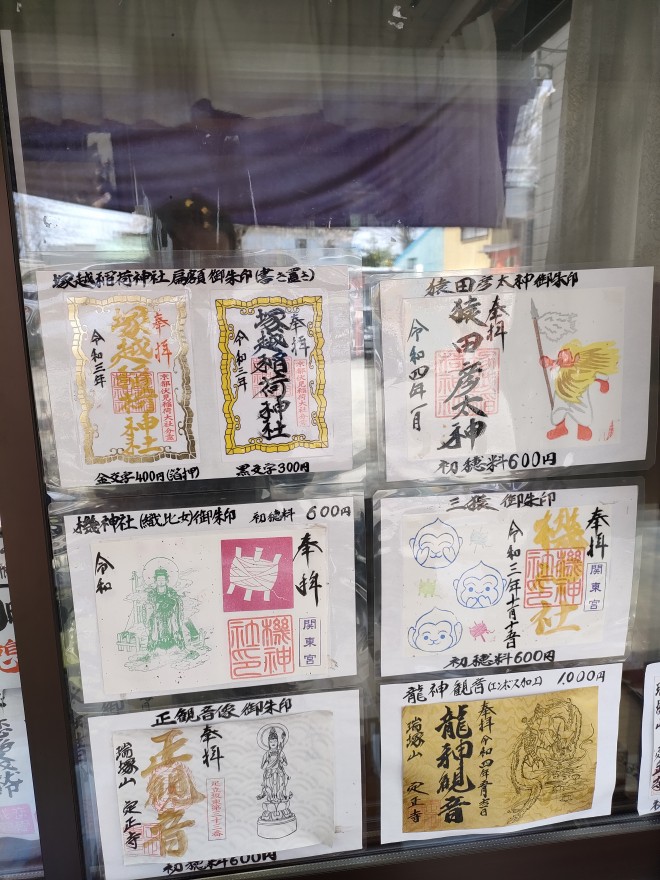 塚越稲荷神社扁額御朱印(書き置き)
奉拝
塚越稲荷神社
令和三年
京都伏見稲荷大社分霊
金文字400円(箔押)
奉拝
塚越稲荷神社
令和三年
京都伏見稲荷大社分霊
黒文字300円
猿田彦太神御朱印
奉拝
猿田彦太神
令和四年一月
初穂料600円
機神社(織比女)御朱印 初穂料 600円
奉拝
令和
関東宮
機神社印
三猿 御朱印
奉拝
機神社
機神社印
関東宮
令和三年十月十五日
初穂料600円
正観音像 御朱印
奉拝
正観音
瑞塚山 定正寺
初穂料600円
龍神観音(エンボス加工) 1,000円
奉拝
龍神観音
瑞塚山 定正寺